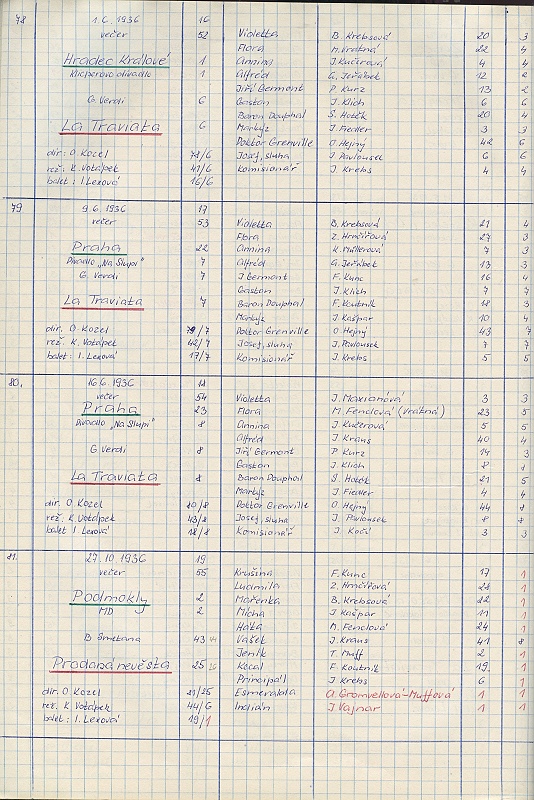 78 1.6.1936 16
večer 52 Violetta B. Krebsová 20 3
Flora M. Vrátná 22 4
Hradec Králové 1 Annina J. Kučerová 4 4
Klicperovo divadlo 1 Alfréd G. Jeřábek 12 2
Jiří Germont P. Kurz 13 2
G. Verdi 6 Gaston J. Klich 6 6
Baron Douphal S. 20 4
La Traviata 6 Markýz J. Fiedler 3 3
Doktor Grenville O. Hejný 42 6
dir: O. Kozel 78/6 Josef, sluha J. Pavlousek 6 6
rež: K. Votápek 41/6 Komisionář J. Krebs 4 4
balet: I. Lexová 16/6
79 9.6.1936 17
večer 53 Violetta B. Krebsová 21 4
Flora Z. Hrnčířová 27 3
Praha 22 Annina K. Müllerová 7 3
Divadlo „Na Slupi" 7 Alfréd G. Jeřábek 13 3
G. Verdi 7 J. Germont F. Kunc 16 4
Gaston J. Klich 7 7
La Traviata 7 Baron Douphal F. Koutník 18 3
Markýz J. Kašpar 10 4
dir. O. Kozel 79/7 Doktor Grenville O. Hejný 43 7
rež. K. Votápek 42/7 Josef, sluha J. Pavlousek 7 7
balet: I. Lexová 17/7 Komisionář J. Krebs 5 5
80. 16.6.1936 18
večer 54 Violetta J. Maxianová 3 3
Praha 23 Flora M. Fenclová (Vrátná) 23 5
Divadlo „Na Slupi" 8 Annina J. Kučerová 5 5
Alfréd J. Kraus 40 4
G Verdi 8 Jiří Germont P Kurz 14 3
Gaston J. Klich 8 8
La Traviata 8 Baron Douphal S. 21 5
Markýz J Fiedler 4 4
dir. O. Kozel 80/8 Doktor Grenville O. Hejný 44 8
rež. K. Votápek 43/8 Josef, sluha J. Pavlousek 8 8
balet I. Lexová 18/8 Komisionář J. Kočí 3 3
81. 27.10 1936 19
večer 55 Krušina F. Kunc 17 1
Ludmila Z. Hrnčířová 28 1
Podmokly 2 Mařenka B. Krebsová 22 1
MD 2 Mícha J Kašpar 11 1
Háta M. Fenclová 24 1
B Smetana 43 44 Vašek J. Kraus 41 8
Jeník T. Muff 2 1
Prodaná nevěsta 25 26 Kecal F Koutník 19 1
Principál J Krebs 6 1
dir. O. Kozel 81/25 Esmeralda A. Gromvellová-Muffová 1 1
rež. K Votápek 44/6 Indián J Vajnar 1 1
balet: I. Lexová 19/1